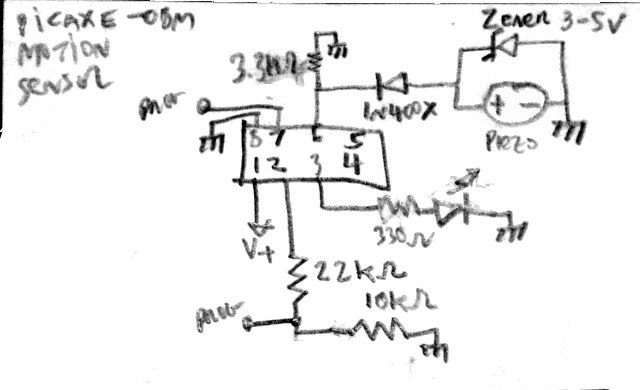 PICAXE-08M
MOTION
SENSOR
Zener 3-5V
3.3kΩ
1N400X
+ -
PIEZO
8 7 6 5
1 2 3 4
330Ω
V+
22kΩ
10kΩ